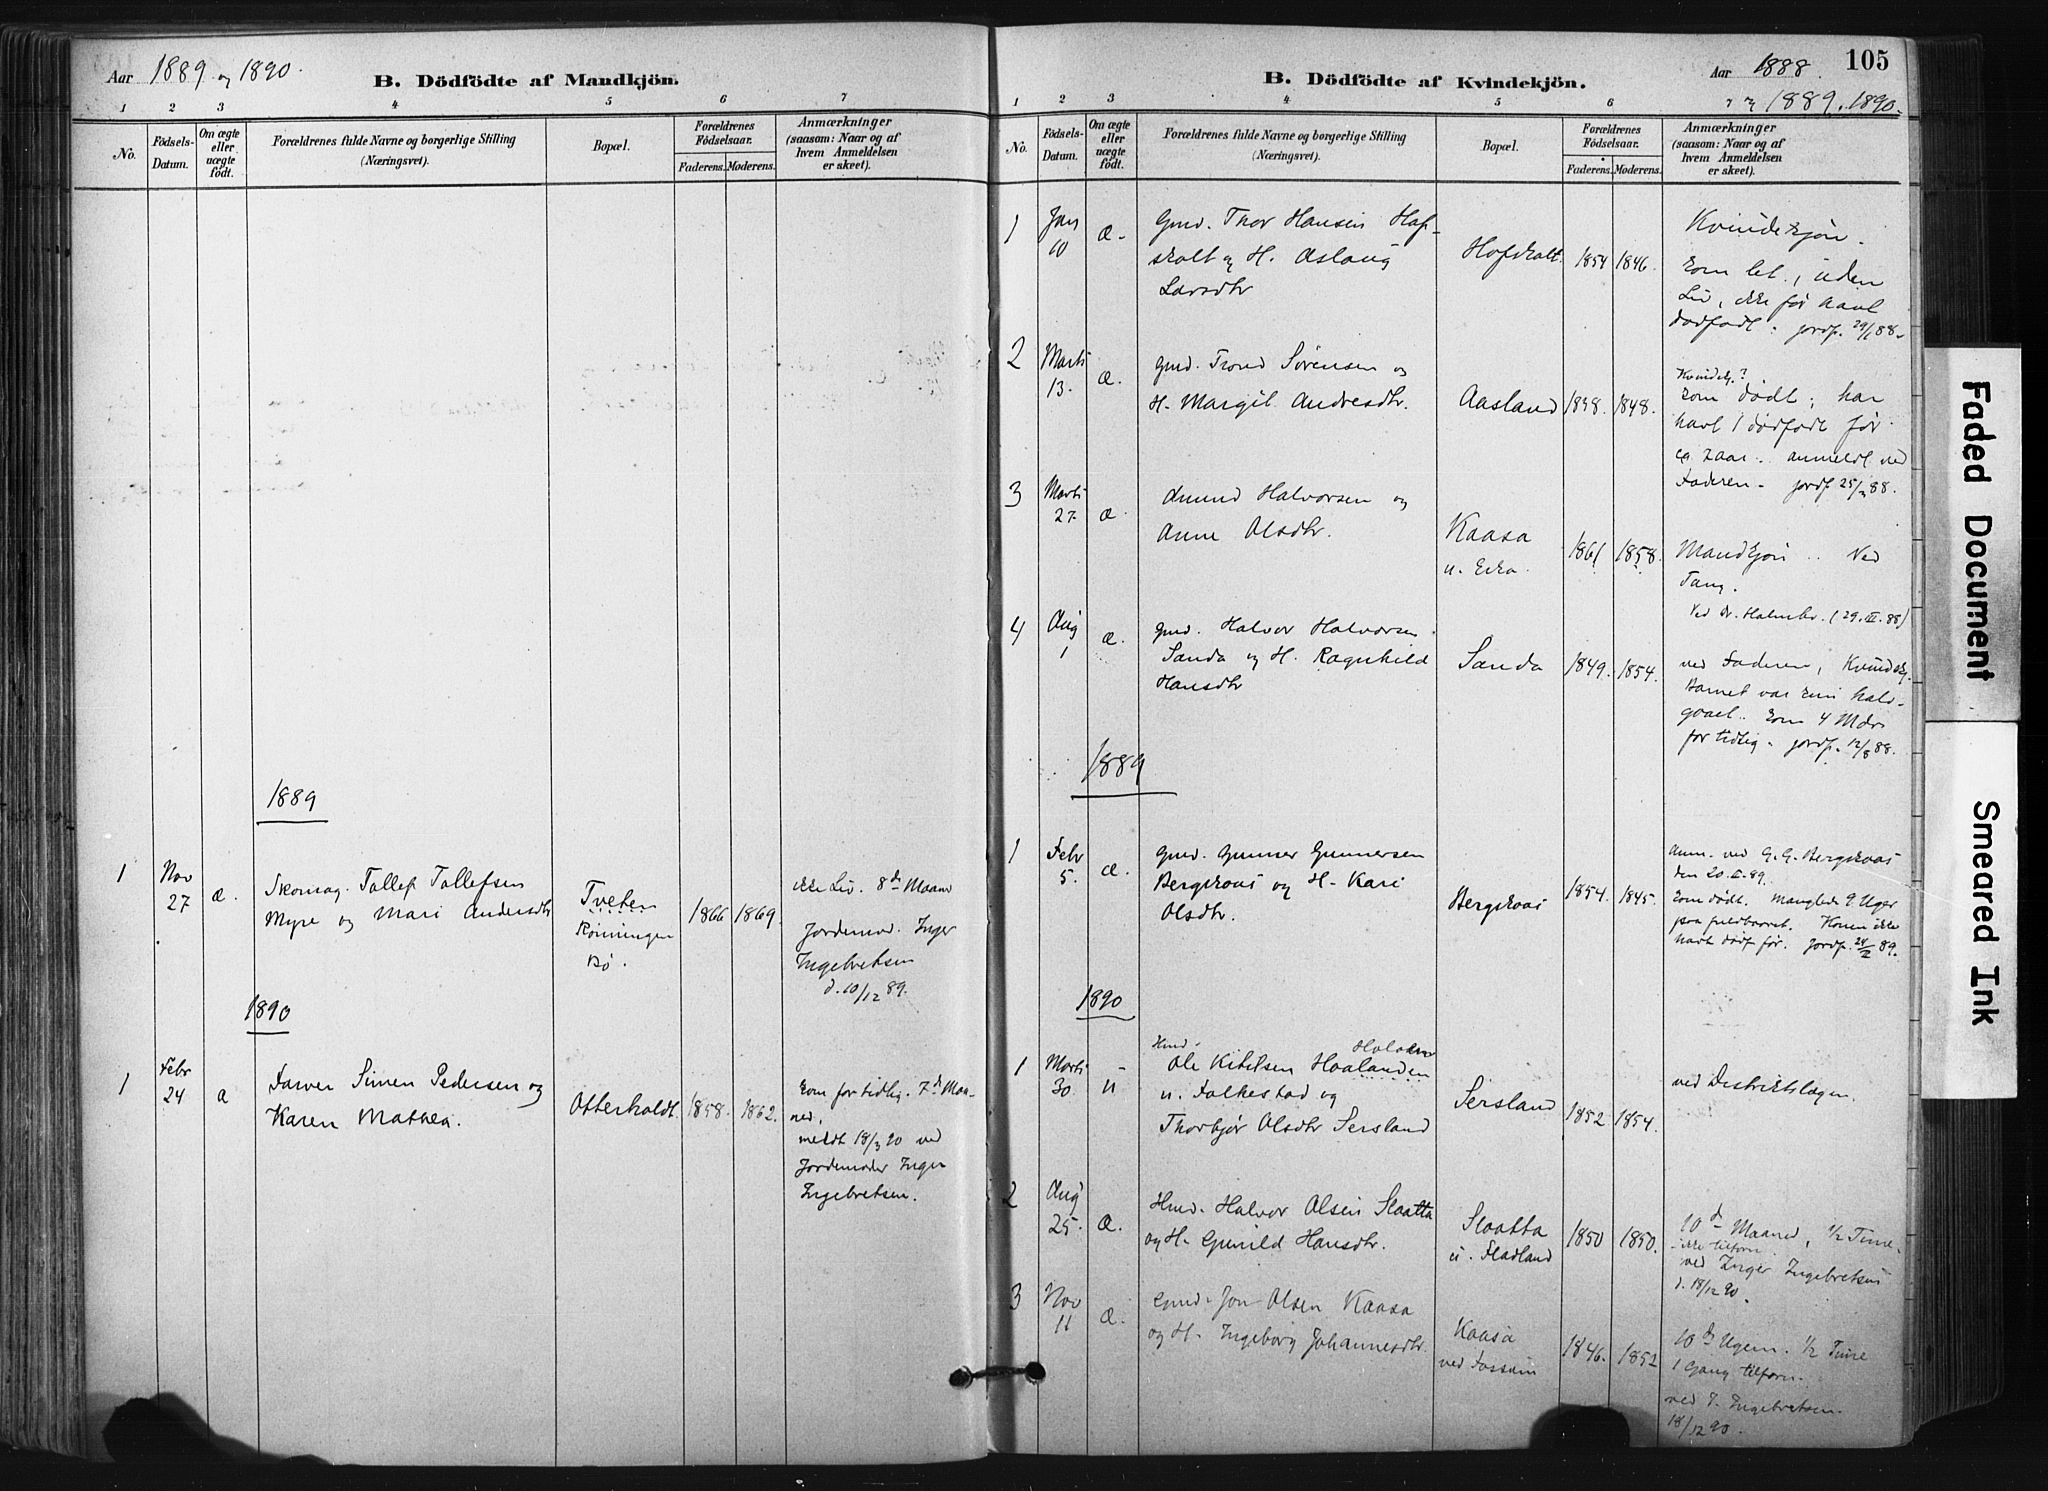 Aar 1889 og 1890.
B. Dödfödte af Mandkjön.
1 2 3 4 5 6 7
No.
Födsels-Datum.
Om ægte eller uægte födt.
Forældrenes fulde Navne og borgerlige Stilling (Næringsvei).
Bopæl.
Forældrenes Födselsaar.
Faderens. Moderens.
Anmærkninger (saasom: Naar og af hvem Anmeldelsen er skeet).
1889
1 Nov 27 æ.
Skomag. Tollef Tollefsen
Myre og Mari Andersdtr
Tveten
Rønningen
Bø.
1866 1869.
ikke Liv. 8de Maaned
Jordemod. Inger
Ingebretsen
d. 10/12 89.
1890
1 Febr 24 æ
Farver Simen Pedersen og
Karen Mathea.
Otterholdt.
1858. 1862.
Kom for tidlig. 7de Maa-
ned,
meldt 18/3 90 ved
Jordemoder Inger
Ingebretsen.
105
B. Dödfödte af Kvindekjön.
Aar 1888.
og 1889. 1890.
1 2 3 4 5 6 7
No.
Födsels-Datum.
Om ægte eller uægte födt.
Forældrenes fulde Navne og borgerlige Stilling (Næringsvei).
Bopæl.
Forældrenes Födselsaar.
Faderens. Moderens.
Anmærkninger (saasom: Naar og af hvem Anmeldelsen er skeet).
1 Jan 10 æ.
Gmd. Thor Hansen Hof-
skalt og H. Aslaug
Larsdtr
Hofskalt.
1854 1846.
Kvindekjøn.
Kom let, uden
Liv, ikke før havt
dødfødt. jordf. 29/1 88.
2 Marts 13. æ.
Gmd. Trond Sørensen og
H. Margit Andresdtr.
Aasland
1848.
Kvindekj.?
Kom dødt; har
havt 1 dødfødt før
ca 2 aar. anmeldt ved
Faderen. jordf. 25/3 88.
3 Marts 27. æ.
Amund Halvorsen og
Anne Olsdtr.
Kaasa
u. Eika.
1861 1858.
Mandkjøn .. Ved
Tang.
Ved Dr. (29. III. 88)
4 Aug 1 æ.
Gmd. Halvor Halvorsen
Sanda og H. Ragnhild
Hansdtr
Sanda
1849. 1854.
ved Faderen, Kvindekj.
Barnet var kun halv-
gaaet. Kom 4 Mdr
for tidlig. jordf. 12/8 88.
1889
1 Febr 5. æ.
Gmd. Gunner Gunnersen
Bergskaas og H. Kari
Olsdtr.
Bergskaas
1854. 1845.
Anm. ved G. G. Bergskaas
den 20. II. 89.
Kom dødt. Manglede 9 Uger
paa fuldbaaret. Konen ikke
havt dødf før. Jordf. 24/II 89.
1890
1 Marts 30. u
Hmd.
Ole Kittilsen Haalanden
u. Falkestad og
Thorbjør Olsdtr Sersland
Sersland
1852 1854.
ved Distriktslægen.
2 Aug 25. æ.
Hmd. Halvor Olsen Slaatta
og H. Gunild Hansdtr.
Slaatta
u. Fladland
1850 1850.
10d Maaned, 1/2 Time.
ikke tilforn.
ved Inger Ingebretsen
d. 18/12 90.
3 Nov 11 æ.
Gmd. Jon Olsen Kaasa
og H. Ingeborg Johannesdtr.
Kaasa
ved Fossum
1846. 1852
10de Ugen. 1/2 Time
1 Gang tilforn.
ved I. Ingebretsen.
18/12 90.
Faded Document
Smeared Ink